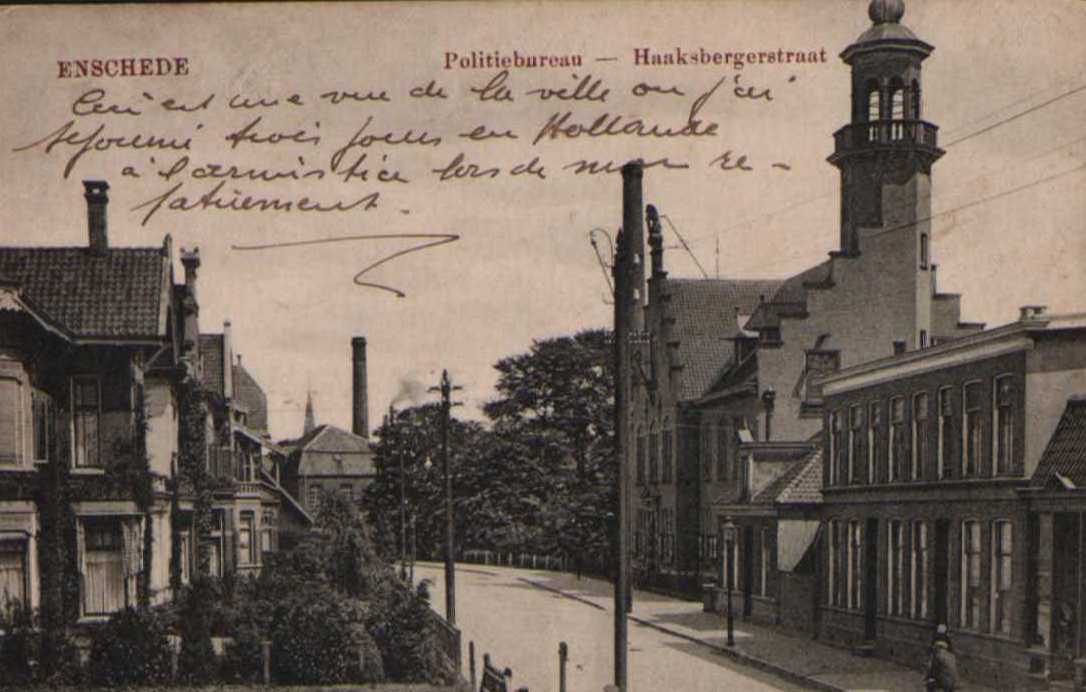 ENSCHEDE
Politiebureau — Haaksbergerstraat
Ceci est une vue de la ville ou j'ai
séjourné trois jours en Hollande
à l'armistice lors de mon re-
patriement.